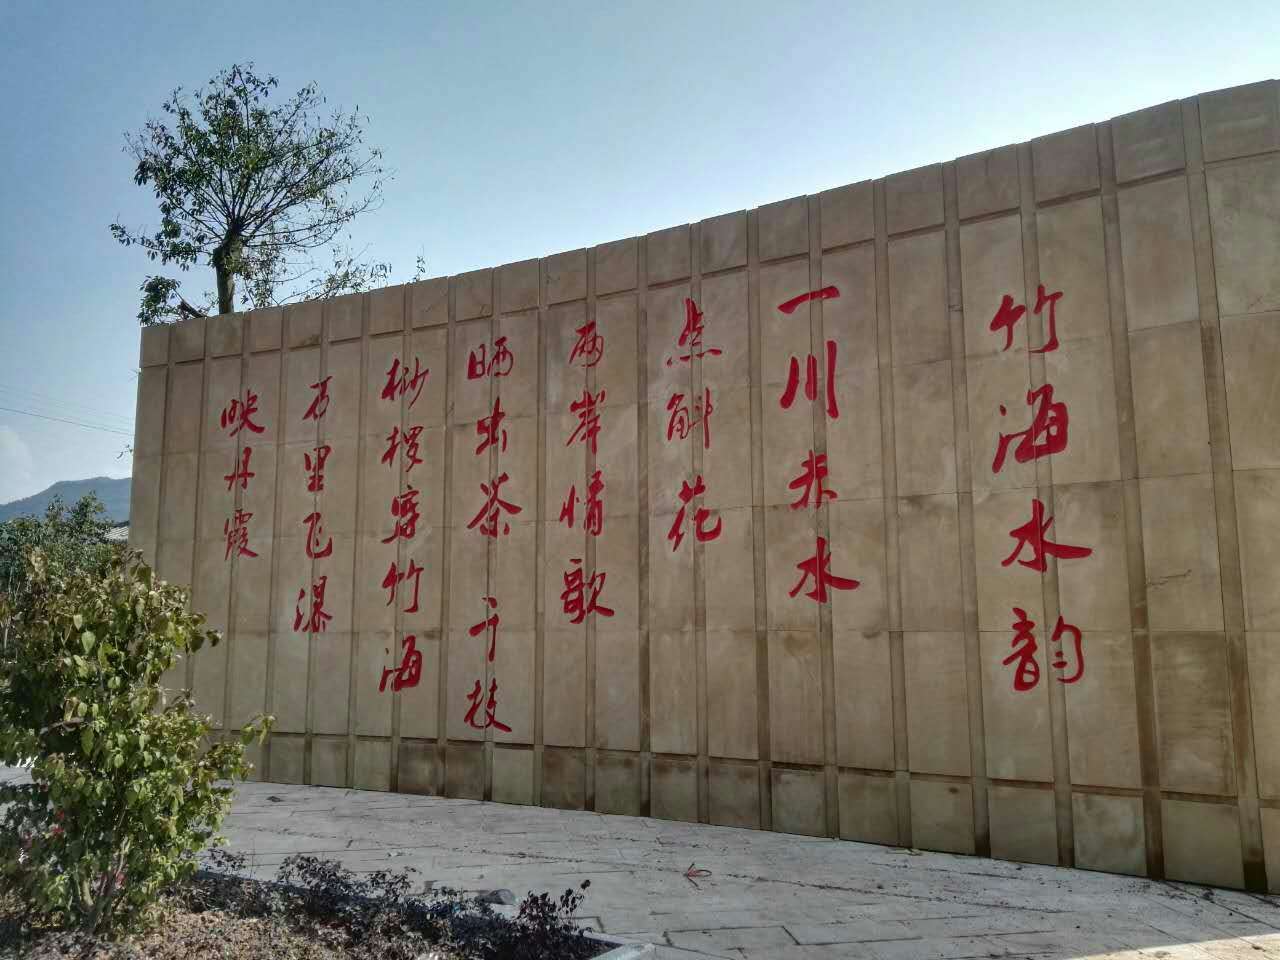 竹海水韵
一川赤水
点斛花
两岸情歌
晒虫茶 千枝
桫椤穿竹海
万里飞瀑
映丹霞